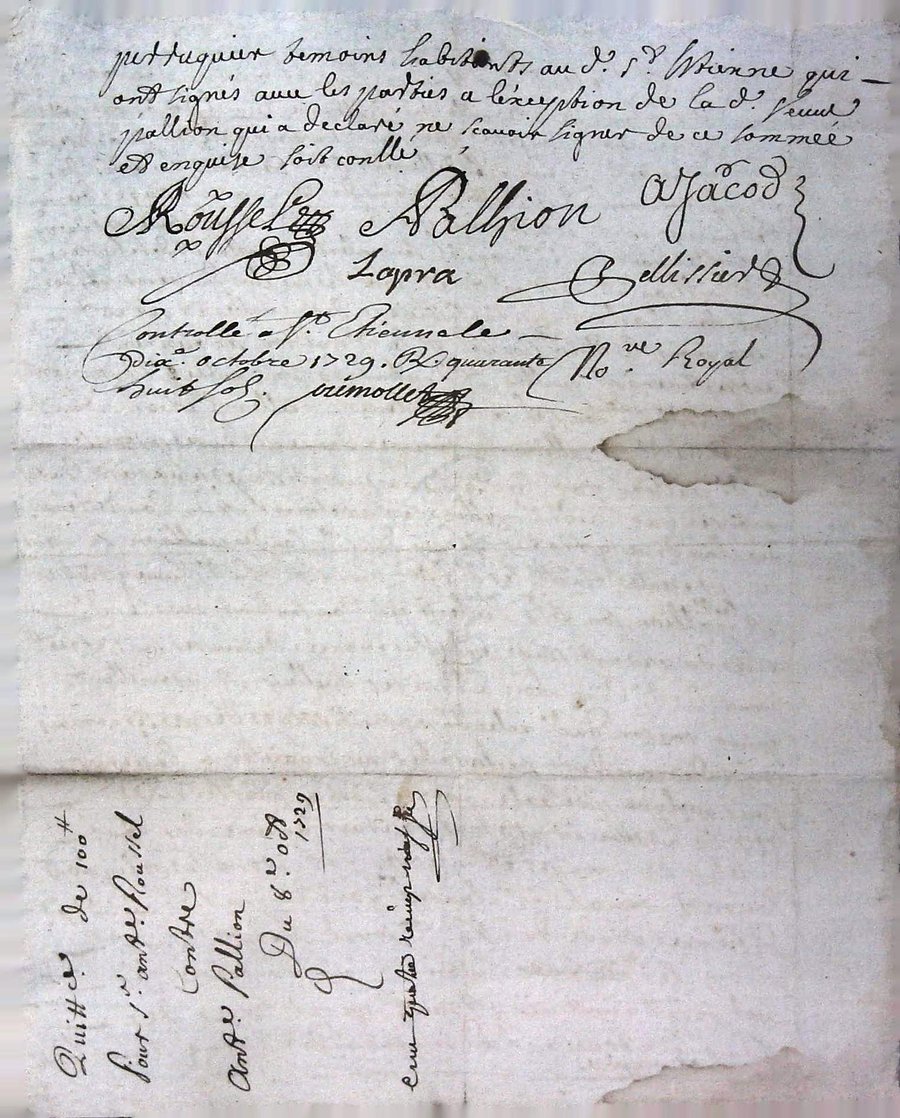 perruquier temoins habitants au d. St. Etienne qui
ont signés avec les parties a l'éxception de la d. veuve
pallion qui a declaré ne scavoir signer de ce sommée
et enquise soit conllé
Roussel Pallion A Jacod
Lapra Pellissier
Controllé a St. Etienne le
octobre 1729. R. quarante No.re Royal
huit sols. vimollet
Quittce. de 100
Pour Sr. antne. Roussel
Contre
Antne. Pallion
Du 8e. 8
1729